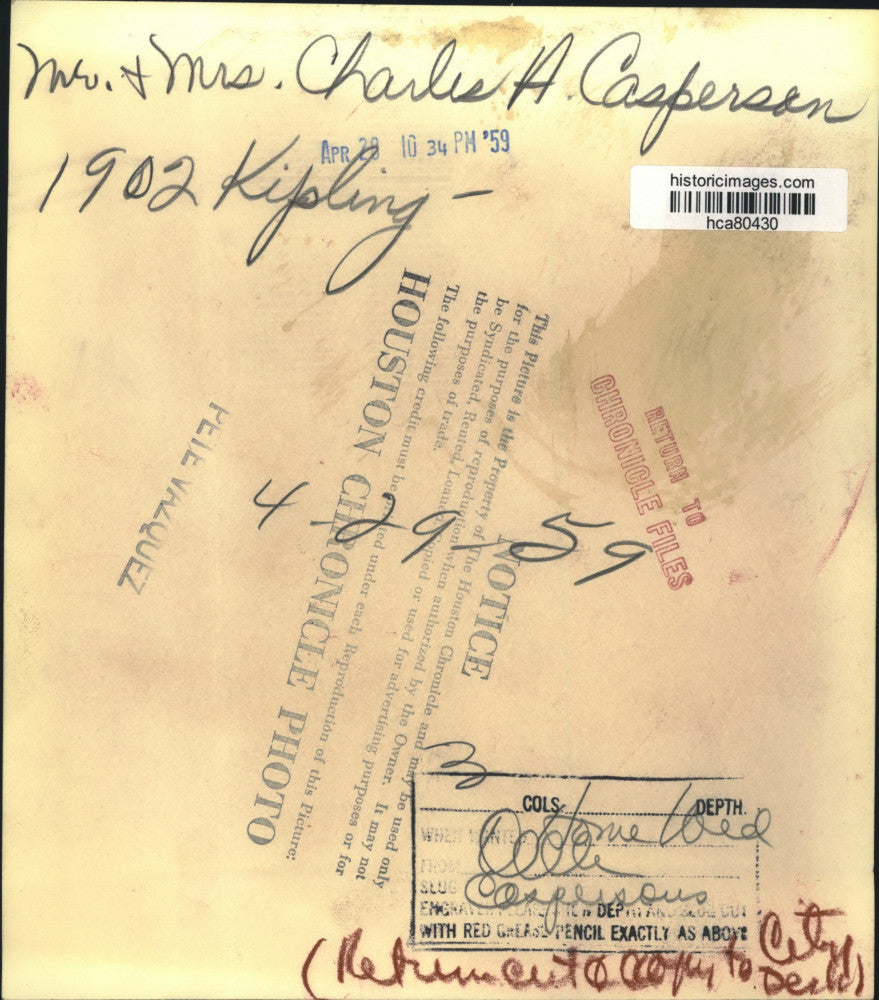 Mr. & Mrs. Charles A. Casperson
APR 28 10 34 PM '59
1902 Kipling -
historicimages.com
hca80430
NOTICE
This Picture is the Property of The Houston Chronicle and may be used only
for the purposes of reproduction when authorized by the Owner. It may not
be Syndicated, Rented, Loaned, Copied or used for advertising purposes or for
the purposes of trade.
The following credit must be printed under each Reproduction of this Picture:
HOUSTON CHRONICLE PHOTO
PETE VAZQUEZ
RETURN TO
CHRONICLE FILES
4-29-59
3
COLS. DEPTH
WHEN WANTED Home Wed
FROM
SLUG Caspersons
WITH RED GREASE PENCIL EXACTLY AS ABOVE
(Return cut & copy to City Desk)